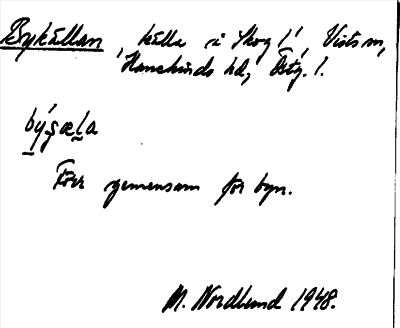 Bykällan, källa i Skog 1/1, Vists sn,
Hanekinds hd, Östg. l.
býʂæla
Förr gemensam för byn.
M. Nordlund 1948.